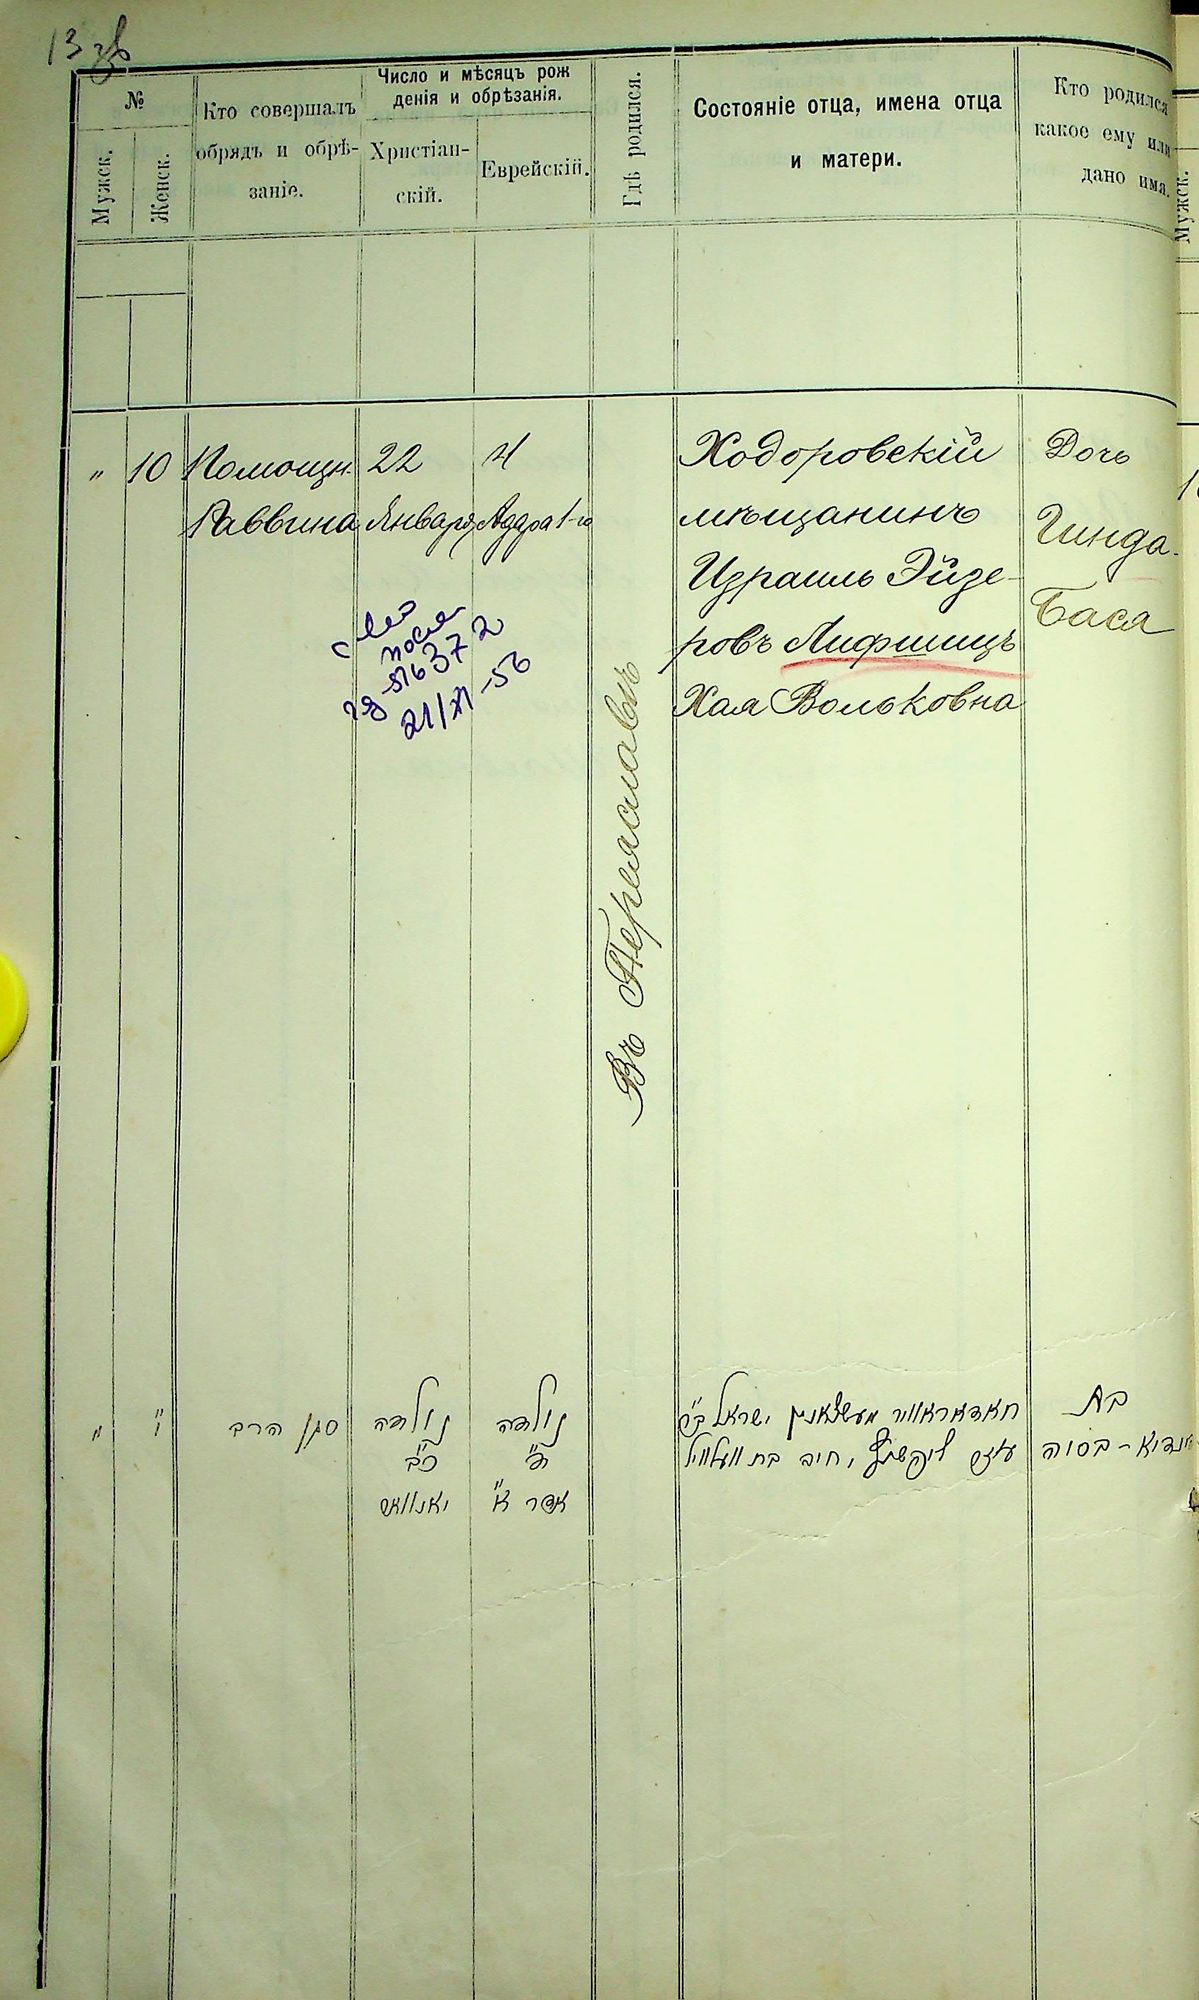 13 зв
№
Мужск.
Женск.
Кто совершалъ
обрядъ и обрѣ-
заніе.
Число и мѣсяцъ рож
денія и обрѣзанія.
Христіан-
скій.
Еврейскій.
Гдѣ родился.
Состояніе отца, имена отца
и матери.
Кто родился
какое ему или
дано имя.
Мужск.
„
10
Помощн.
Раввина
22
Января
4
Адара 1-го
Въ Переяславѣ
Ходоровскій
мѣщанинъ
Израиль Эйзе-
ровъ Лифшицъ
Хая Вольковна
Дочь
Гинда-
Бася
21/XI-56
„
י"
סגן הרב
נולדה
כ"ב
יאנוואר
נולדה
ד"
אדר א"
חאדאראווער מעשצאנין ישראל ב"ר
ליפשיץ, חיה בת וועלוויל
בת
הינדא-בסיה